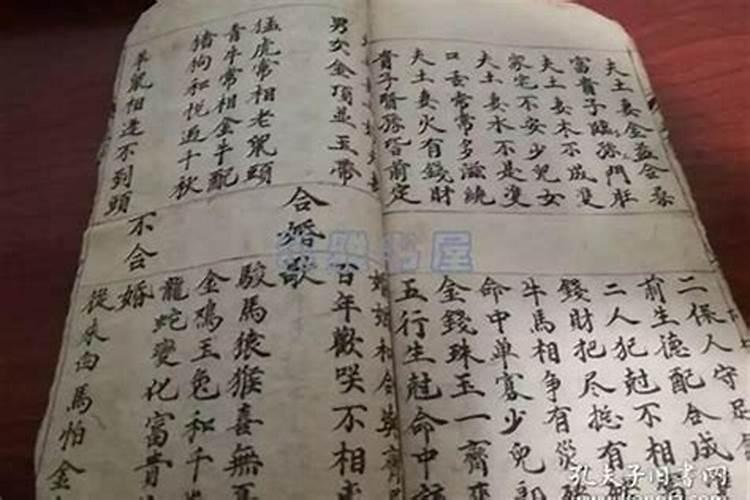 夫土妻金益合
富貴子臨孫門庄
夫土妻木不成雙
家宅不安少兒女
夫土妻水不是雙
口舌常常多滋繞
夫土妻火有錢財
貴子賢孫皆前定
二保人守足
前生德配合成
二人犯尅不相
錢財把尽總有
牛馬相爭有災
命中單寡少兒郎
金錢珠玉一齊來
五行生尅命中該
婚姻和合
男女金項並玉帶
猛虎常相老鼠頭
青牛常相金牛配
猪狗和悦過千秋
羊鼠相逢不到頭
合婚歌
百年歡咲不相
駿馬猿猴喜無
金鳮玉兔和千
龍蛇變化富貴
不合婚
從来白馬怕金
书屋
孔夫子旧书网